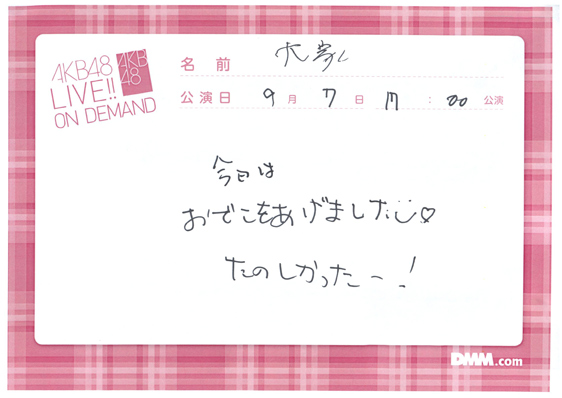 AKB48
LIVE!!
ON DEMAND
AKB
48
名前 大家
公演日 9月7日 17:00 公演
今日は
おでこをあげました♡
たのしかったー!
DMM.com